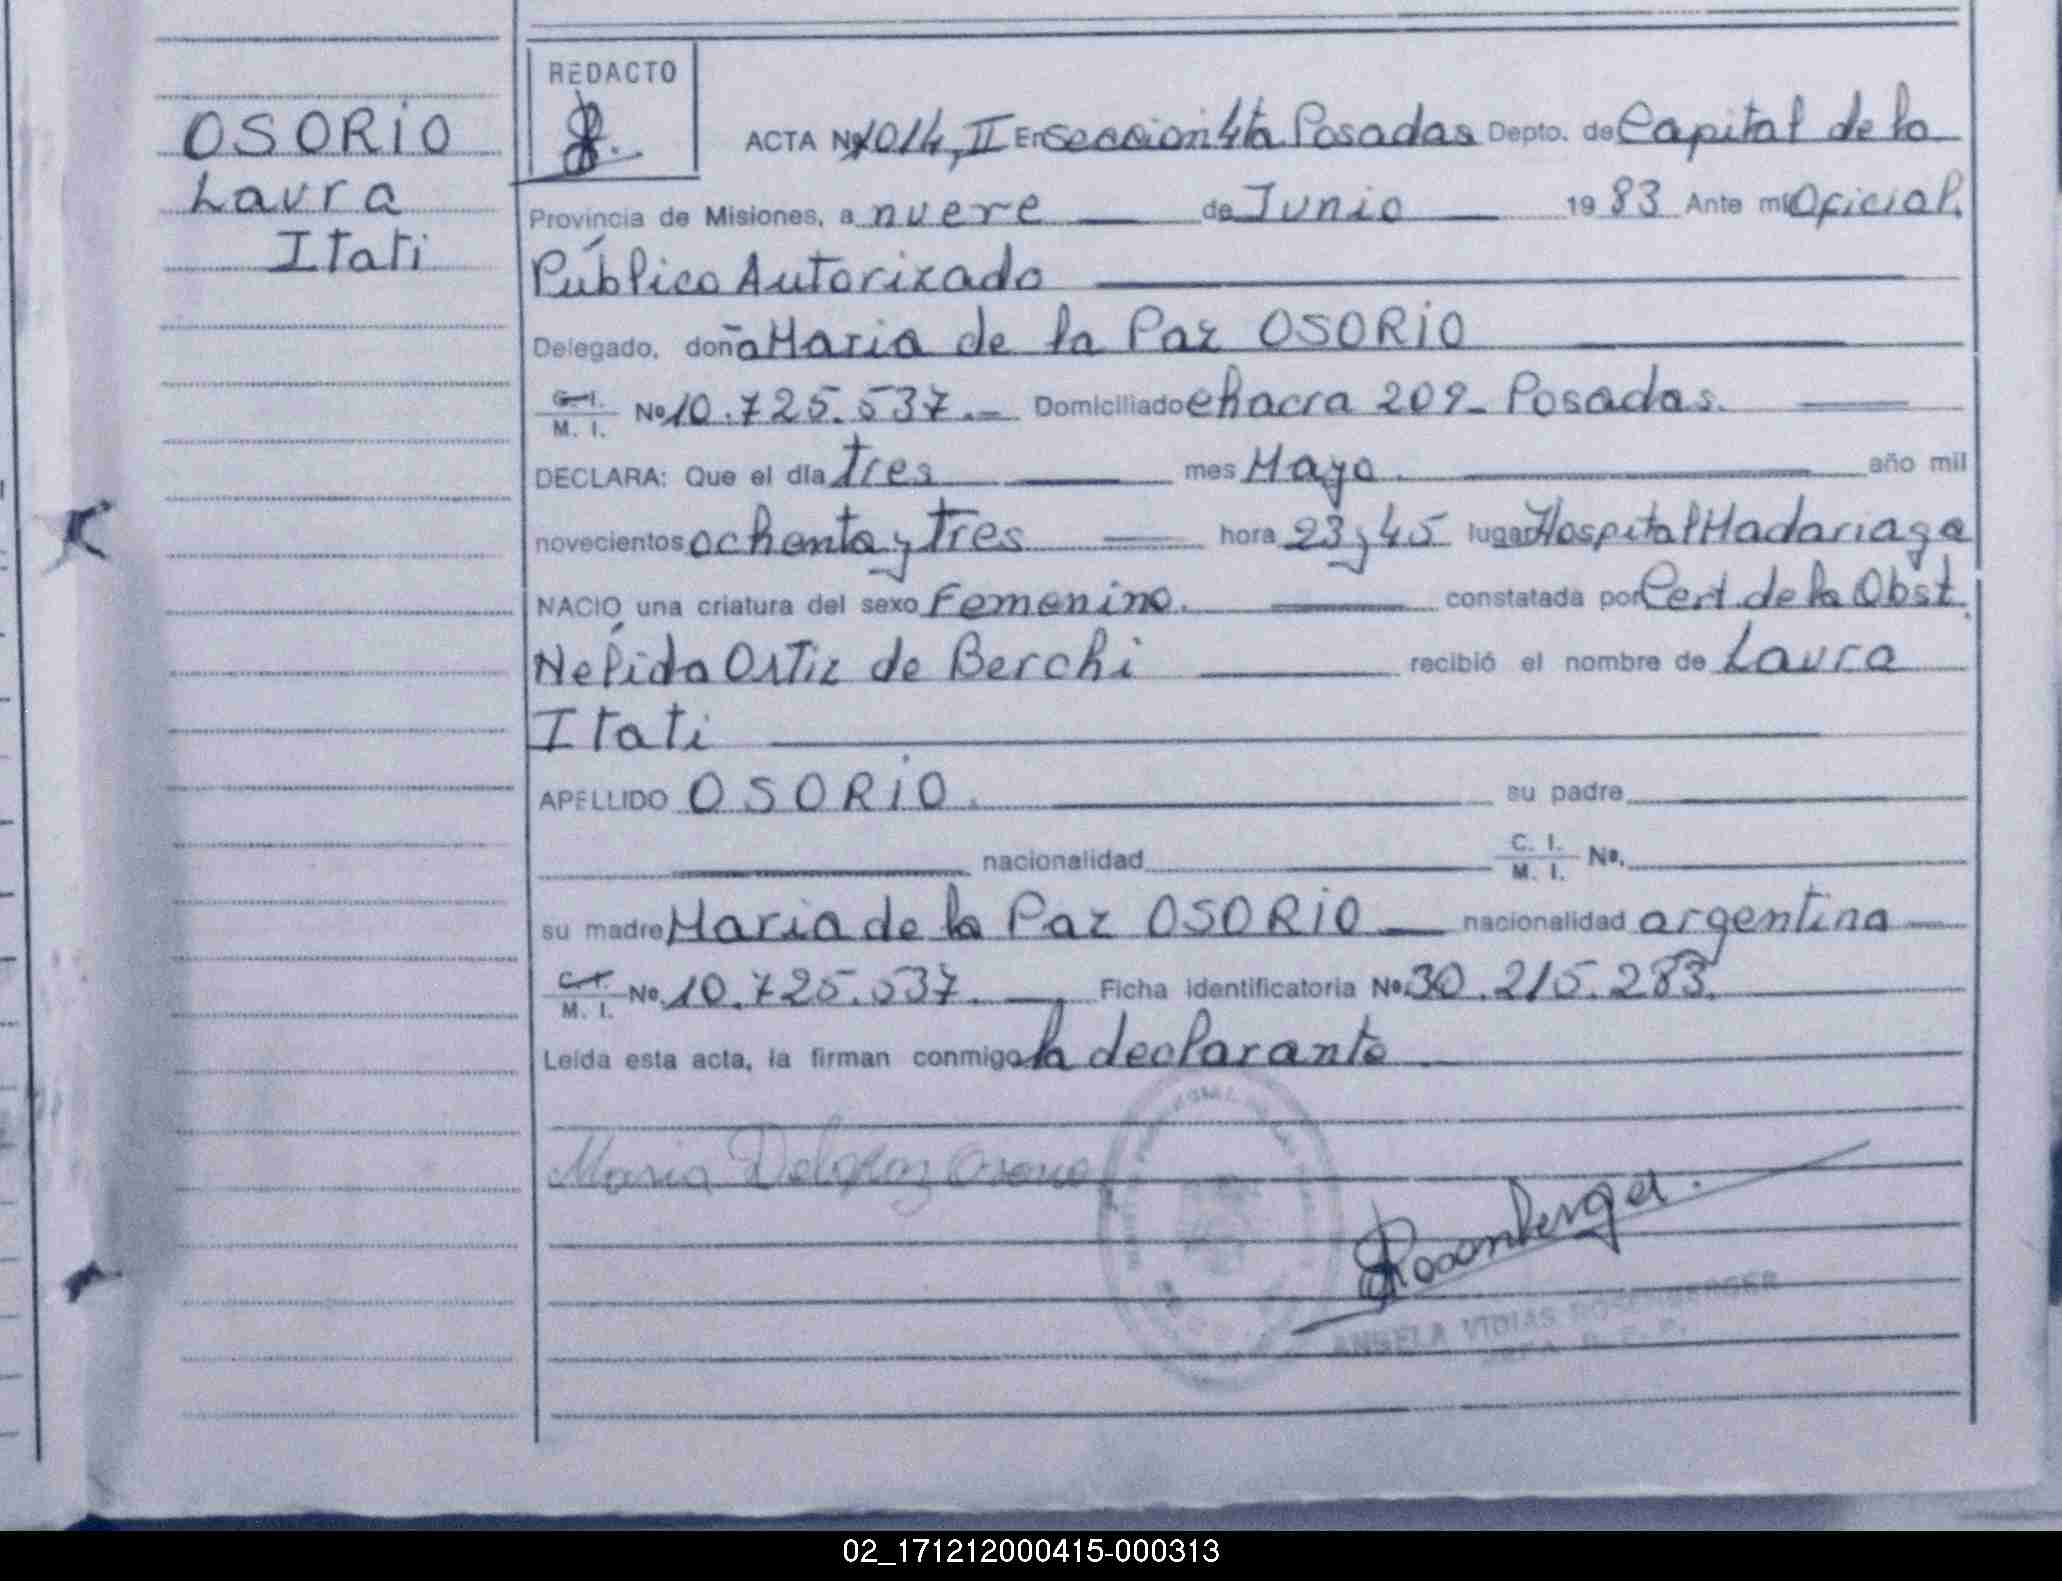 OSORIO
Laura
Itati
REDACTO
ACTA Nº 1014, II En seccion 4ta Posadas Depto. de Capital de la
Provincia de Misiones, a nueve de Junio 1983 Ante mi Oficial
Público Autorizado
Delegado, doña Maria de la Paz OSORIO
C. I. / M. I. Nº 10.725.537.- Domiciliado chacra 209- Posadas.
DECLARA: Que el día tres mes Mayo. año mil
novecientos ochenta y tres hora 23 y 45 lugar Hospital Madariaga
NACIO una criatura del sexo Femenino. constatada por Cert. de la Obst.
Nélida Ortiz de Berchi recibió el nombre de Laura
Itati
APELLIDO OSORIO. su padre
nacionalidad C. I. / M. I. Nº.
su madre Maria de la Paz OSORIO nacionalidad argentina
C. I. / M. I. Nº 10.725.537. Ficha identificatoria Nº 30.215.283.
Leída esta acta, la firman conmigo la declarante
Maria Delapaz Osorio
Rosenberger.
ANGELA VIDIAS ROSENBERGER
02_171212000415-000313